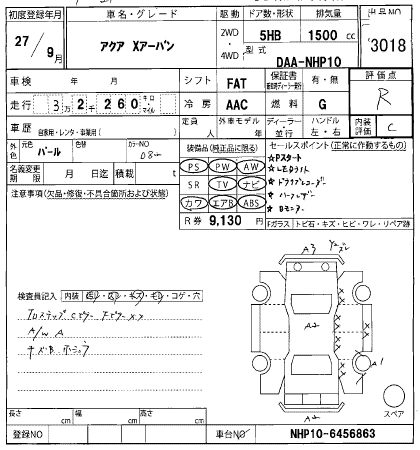 初度登録年月
27/9月
車名・グレード
アクア Xアーバン
駆動
2WD
4WD
ドア数・形状
5HB
排気量
1500 cc
型式
DAA-NHP10
出品NO
3018
車検 年 月
シフト FAT
保証書
有・無
評価点
R
走行 3万2千260キロ
マイル
冷房 AAC
燃料 G
車歴 自家用・レンタ・事業用( )
定員 人
外車モデル 年
ディーラー
並行
ハンドル
左・右
内装評価 C
外色
元色
パール
色替
カラーNO
082
装備品(純正品に限る)
セールスポイント(正常に作動するもの)
名義変更期限 月 日迄
積載 t
PS PW AW
SR TV ナビ
カワ エアB ABS
★Pスタート
★LEDライト
★ドライブレコーダー
注意事項(欠品・修復・不具合箇所および状態)
R券 9,130円
Fガラス トビ石・キズ・ヒビ・ワレ・リペア跡
A3
A2
A1
A2
検査員記入 内装
コゲ・穴
A/W A
スペア
長さ cm
幅 cm
高さ cm
登録NO
車台NO NHP10-6456863